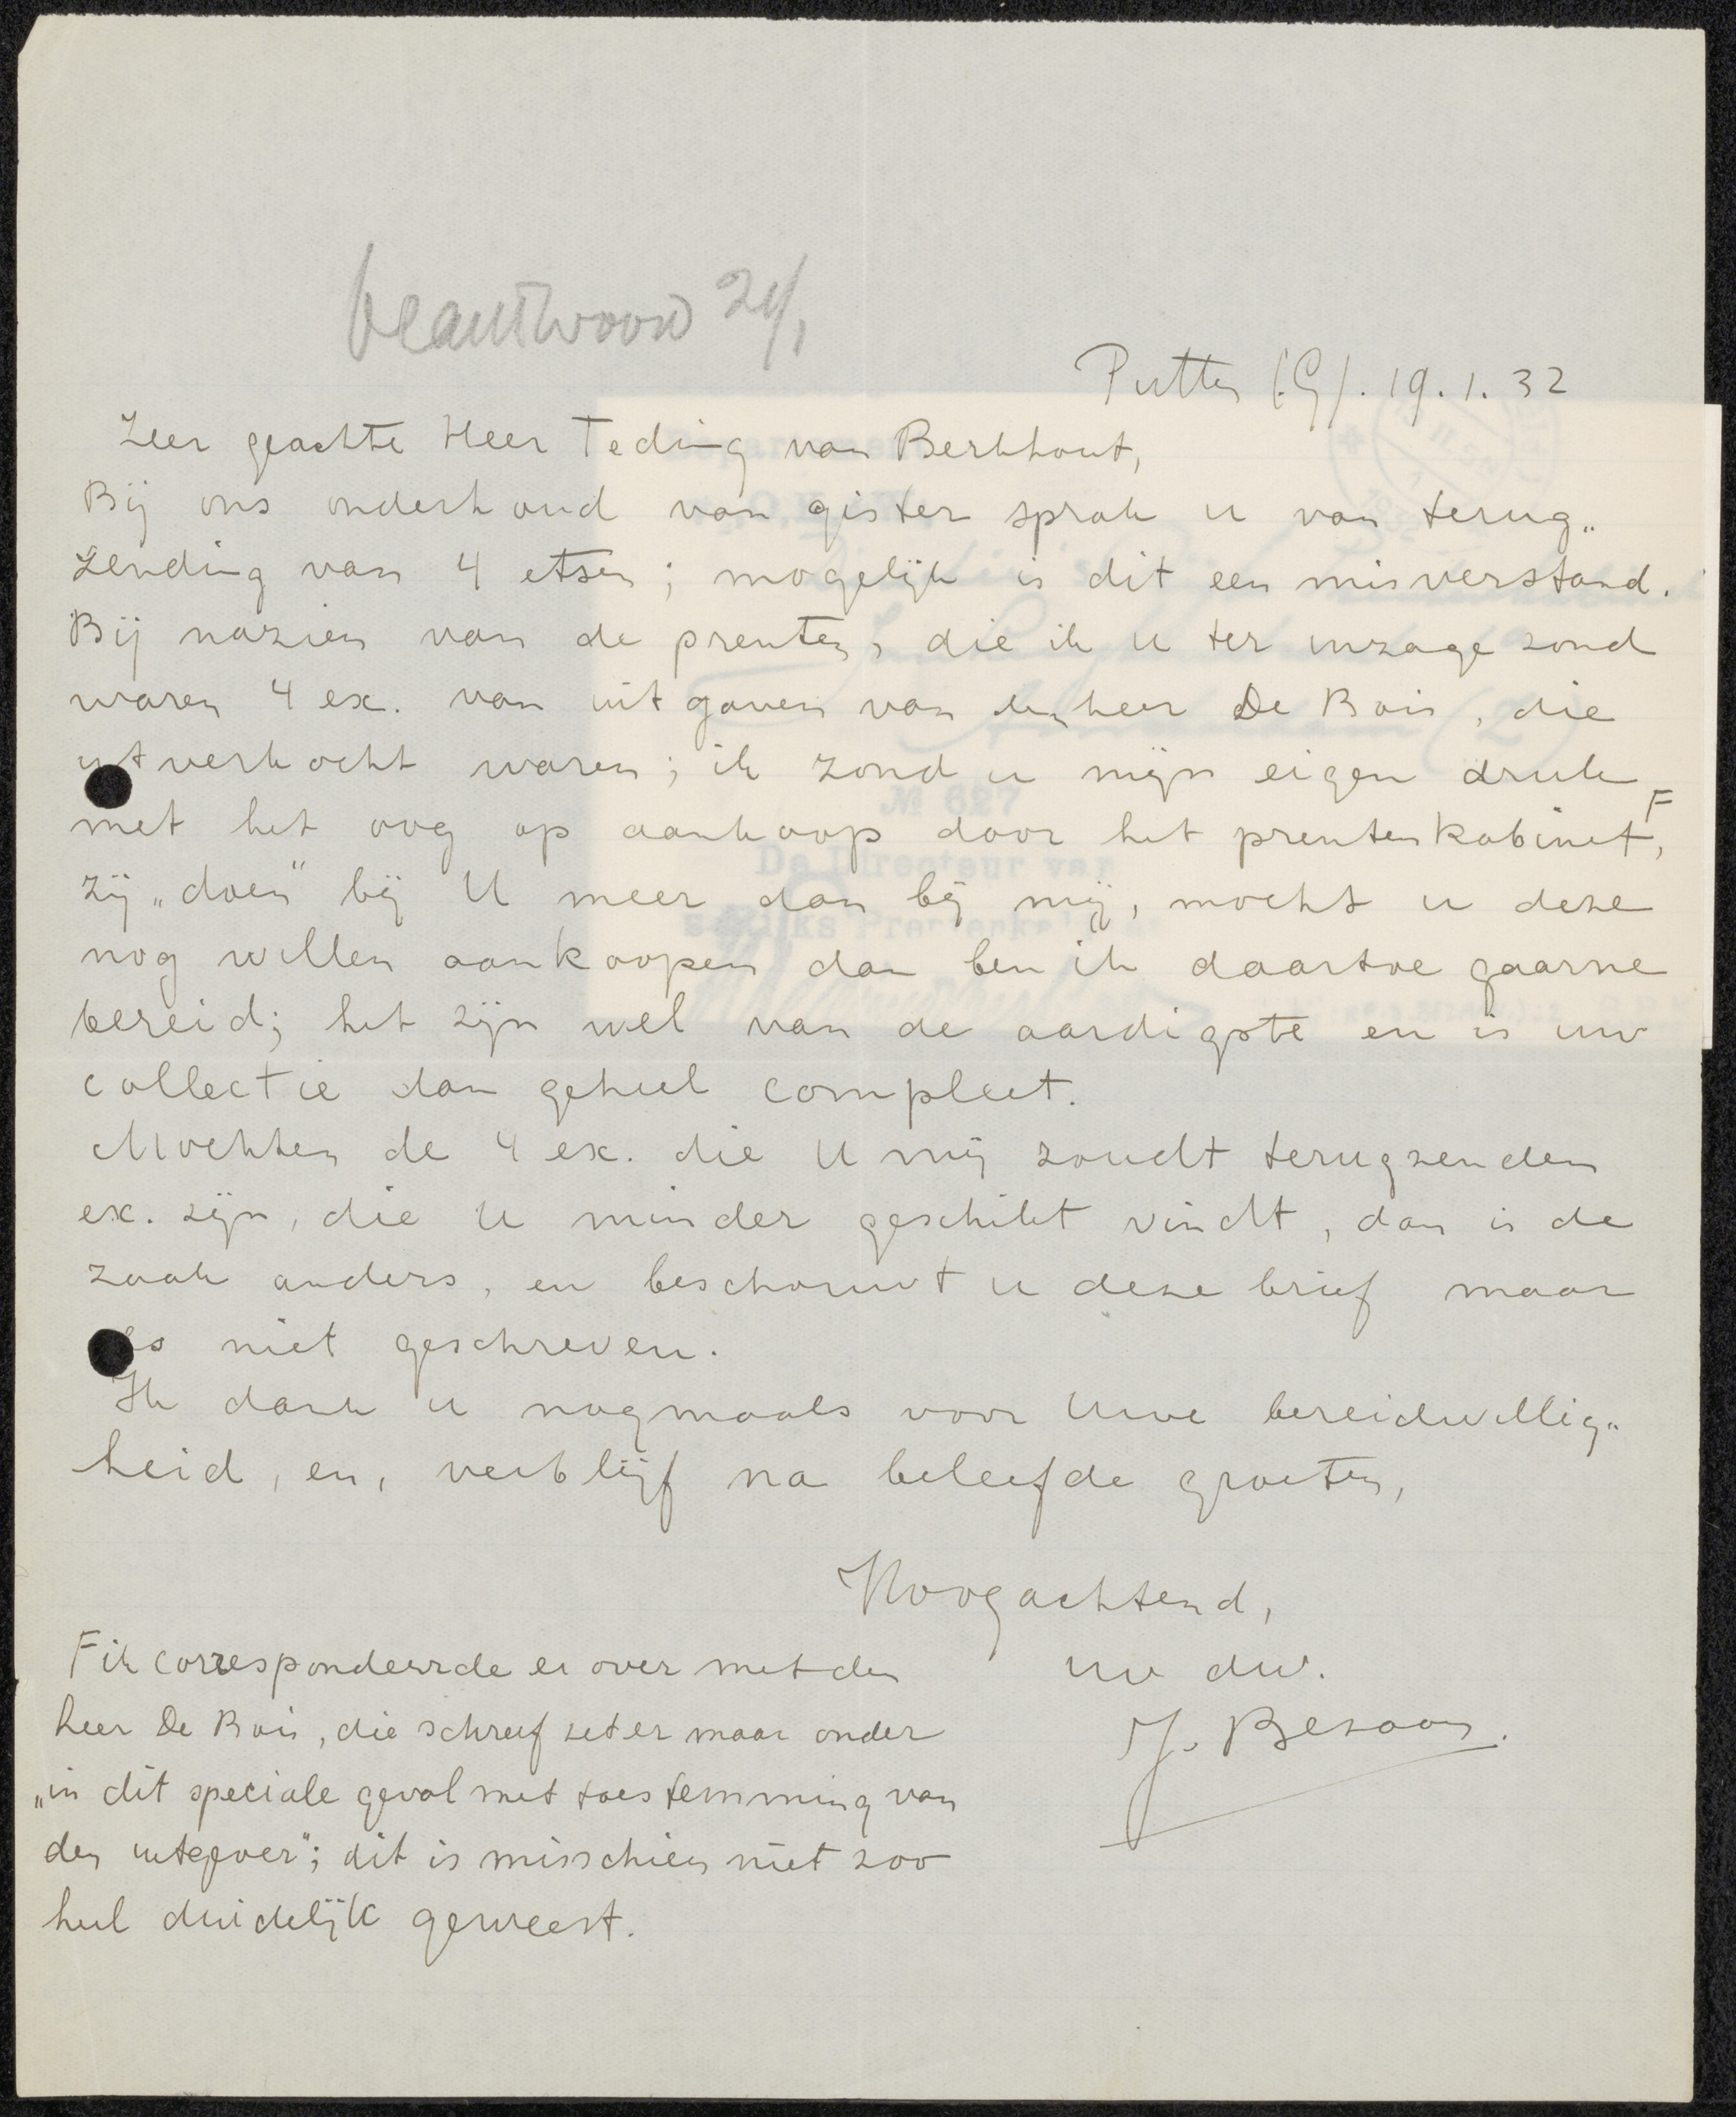 beantwoord 24/1
Putten (G). 19.1.32
Zeer geachte Heer Teding van Berkhout,
Bij ons onderhoud van gister sprak u van terug„
zending van 4 etsen; mogelijk is dit een misverstand.
Bij nazien van de prenten, die ik u ter inzage zond
waren 4 ex. van uitgaven van den heer De Bois, die
uitverkocht waren; ik zond u mijn eigen druk
met het oog op aankoop door het prentenkabinet F,
zij „doen" bij U meer dan bij mij, mocht u deze
nog willen aankoopen dan ben ik daartoe gaarne
bereid; het zijn wel van de aardigste en is uw
collectie dan geheel compleet.
Mochten de 4 ex. die U mij zoudt terugzenden
ex. zijn, die U minder geschikt vindt, dan is de
zaak anders, en beschouwt u deze brief maar
als niet geschreven.
Ik dank u nogmaals voor Uwe bereidwillig„
heid, en, verblijf na beleefde groeten,
Hoogachtend,
uw dw.
J. Bezaan.
F ik correspondeerde er over met den
heer De Bois, die schreef zet er maar onder
„in dit speciale geval met toestemming van
den uitgever"; dit is misschien niet zoo
heel duidelijk geweest.
№ 627
De Directeur van